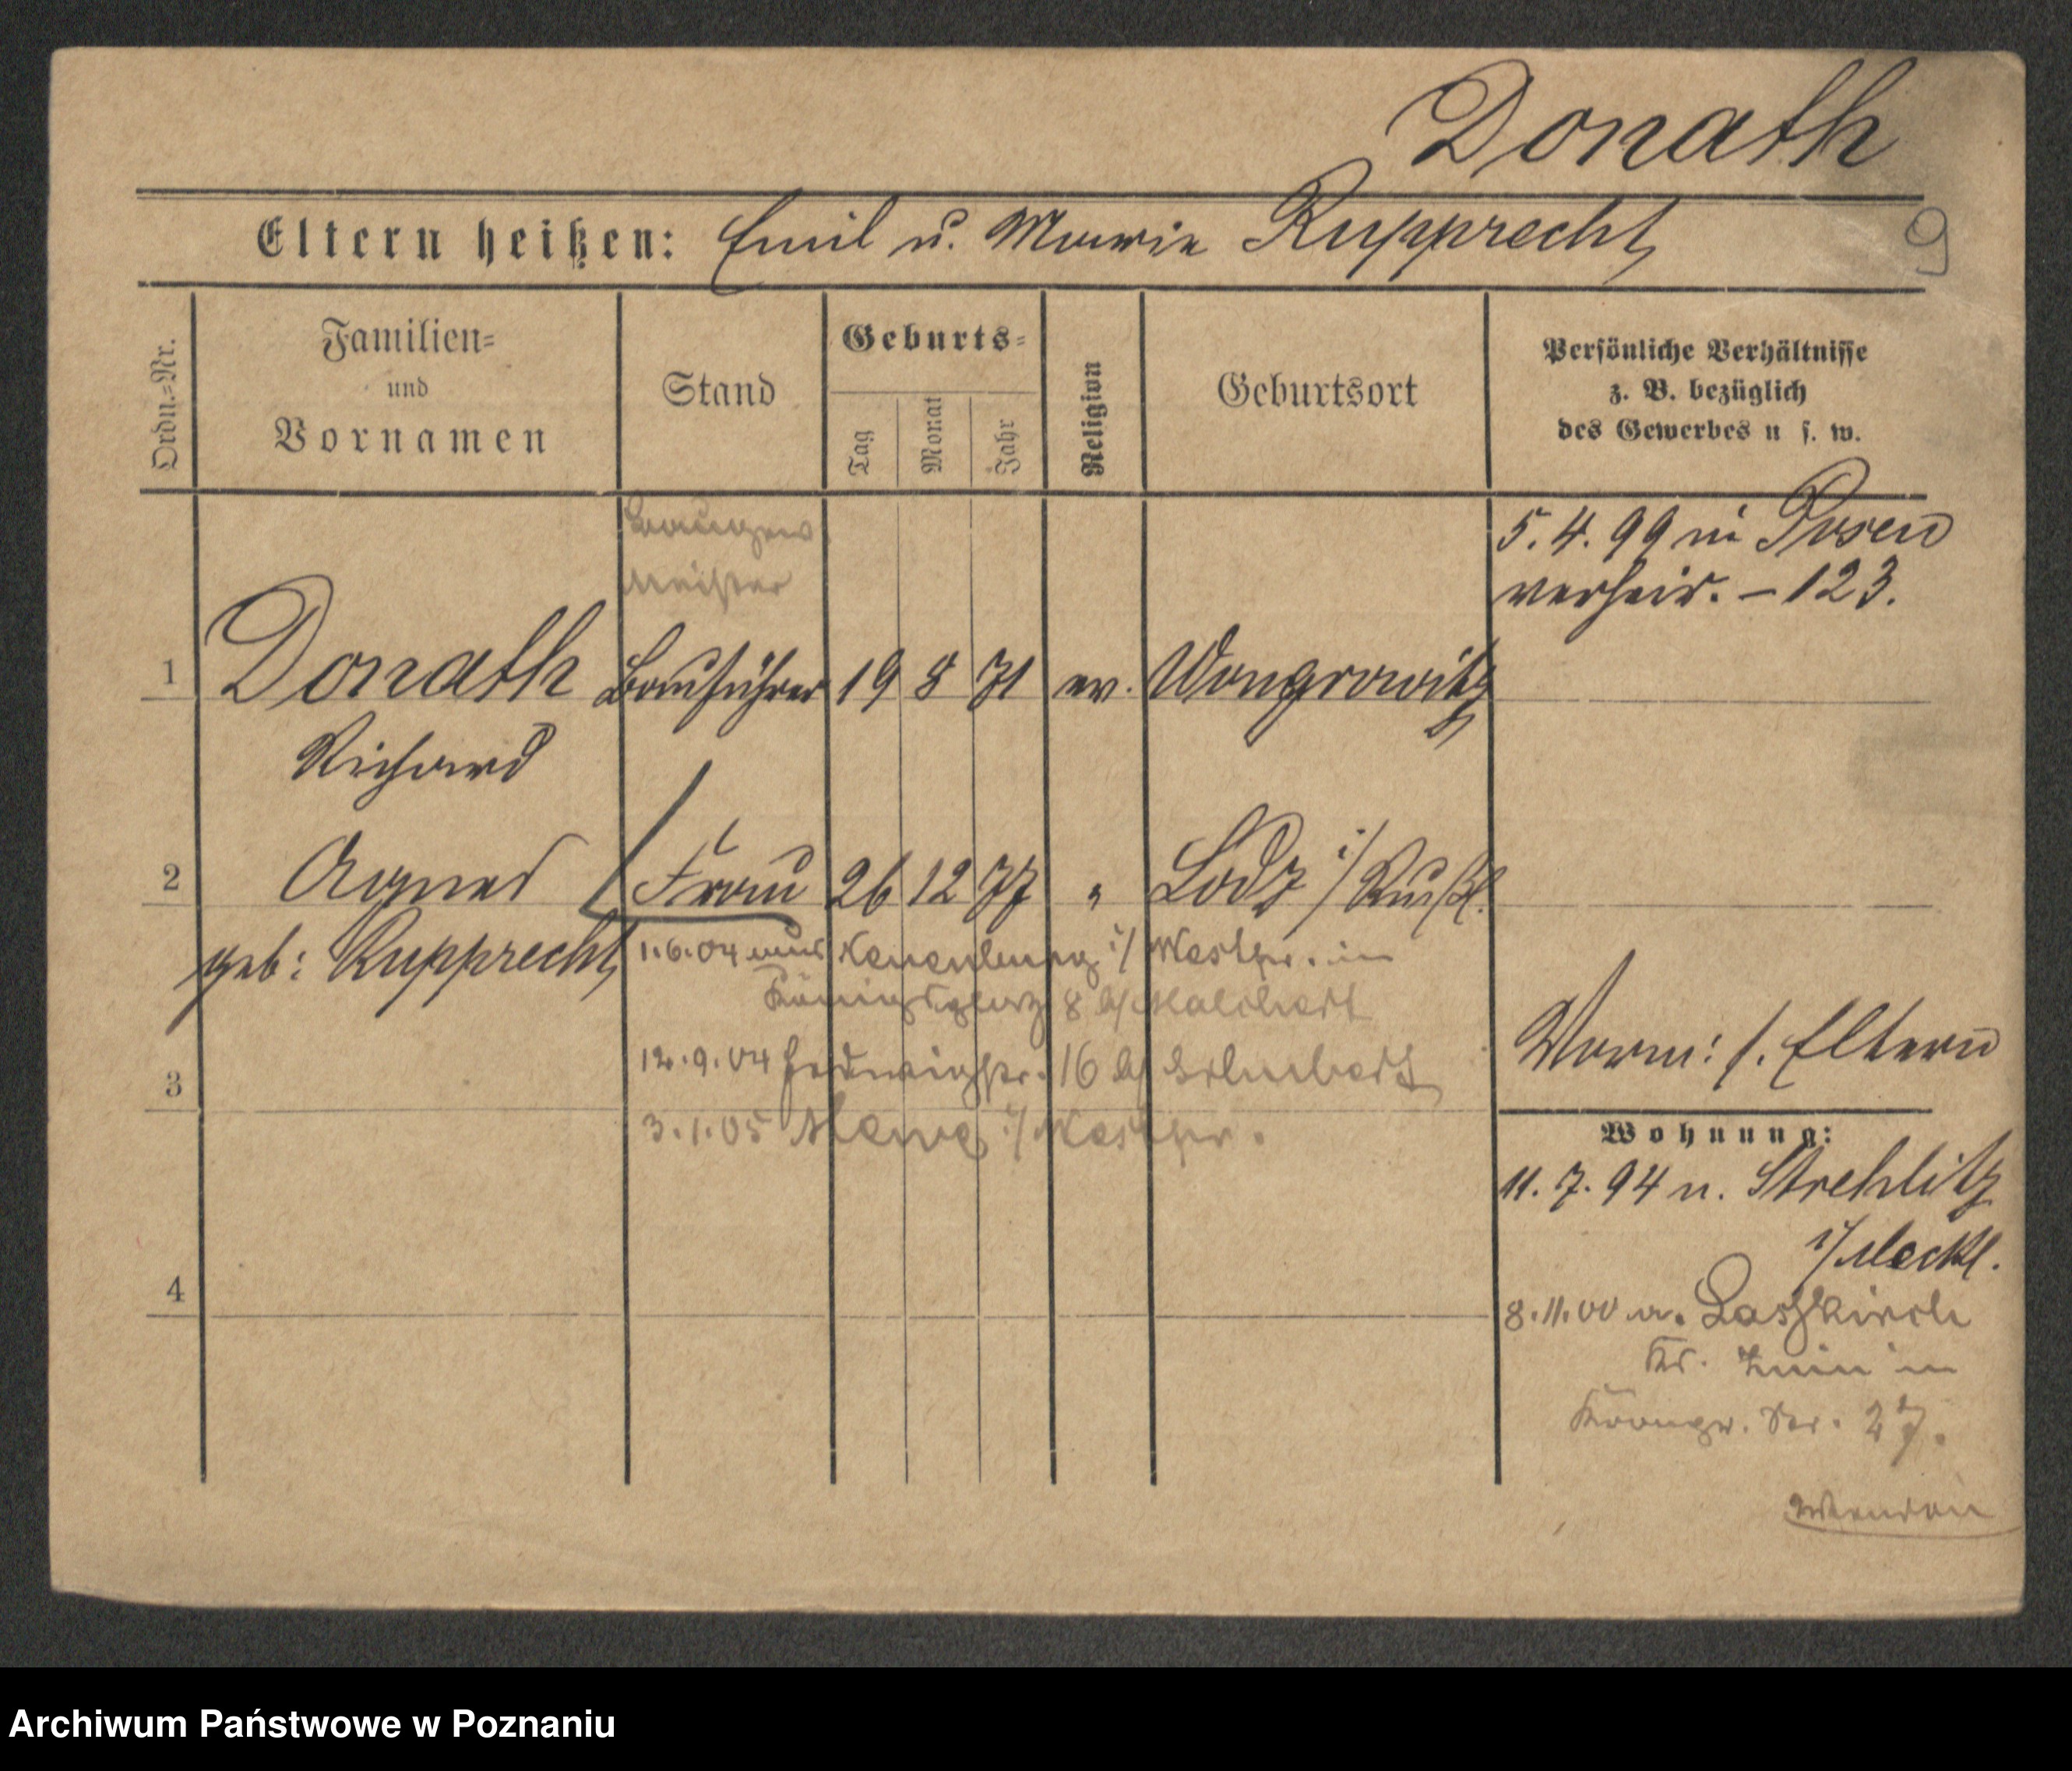 Donath
Eltern heißen: Emil u. Marie Rupprecht
9
Ordn.=Nr.
Familien=
und
Vornamen
Stand
Geburts=
Tag
Monat
Jahr
Religion
Geburtsort
Persönliche Verhältnisse
z. B. bezüglich
des Gewerbes u s. w.
meister
5.4.99 in Posen
verheir. – 123.
1 Donath Bauführer 19 8 71 ev. Wongrowitz
Richard
2 Agnes Frau 26 12 77 " Lodz i/Rußl.
geb: Rupprecht
1.6.04 aus Neuenburg i/Westpr. in
Königsplatz 8 b/
3
12.9.04 Hedwigstr. 16 b/
3.1.05 Mewe i/Westpr.
Vorm: s. Eltern
Wohnung:
11.7.94 n. Strehlitz
i/Meckl.
4
8.11.00 a. Laskirch
Kr. Znin in
Str. 27.
Wenden